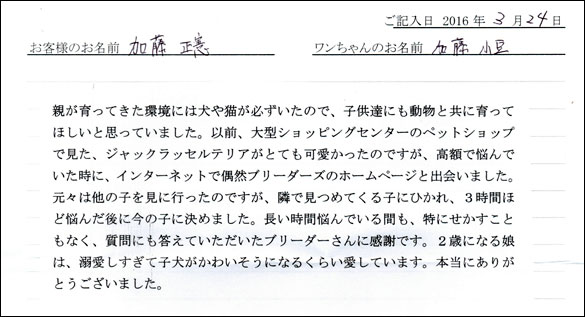 ご記入日 2016 年 3 月 24 日
お客様のお名前 加藤 正憲 ワンちゃんのお名前 加藤 小豆
親が育ってきた環境には犬や猫が必ずいたので、子供達にも動物と共に育って
ほしいと思っていました。以前、大型ショッピングセンターのペットショップ
で見た、ジャックラッセルテリアがとても可愛かったのですが、高額で悩んで
いた時に、インターネットで偶然ブリーダーズのホームページと出会いました。
元々は他の子を見に行ったのですが、隣で見つめてくる子にひかれ、３時間ほ
ど悩んだ後に今の子に決めました。長い時間悩んでいる間も、特にせかすこと
もなく、質問にも答えていただいたブリーダーさんに感謝です。２歳になる娘
は、溺愛しすぎて子犬がかわいそうになるくらい愛しています。本当にありが
とうございました。